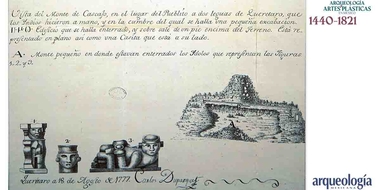 ARQUEOLOGÍA
ARTES PLÁSTICAS
1440-1821
Vista del Monte de Cascajo, en el lugar del Pueblito a dos leguas de Queretaro, que
los Indios hicieron a mano, y en la cumbre del qual se halla una pequeña excabacion.
Edificio que se halla enterrado, y sobre sale de un pie encima del terreno. Está re-
presentado en plano así como una Casita que está a su lado.
A. Monte pequeño en donde estavan enterrados los Idolos que representan las Figuras
1. 2. y 3.
1 2 3
Queretaro a 18 de Agosto de 1777.
arqueología